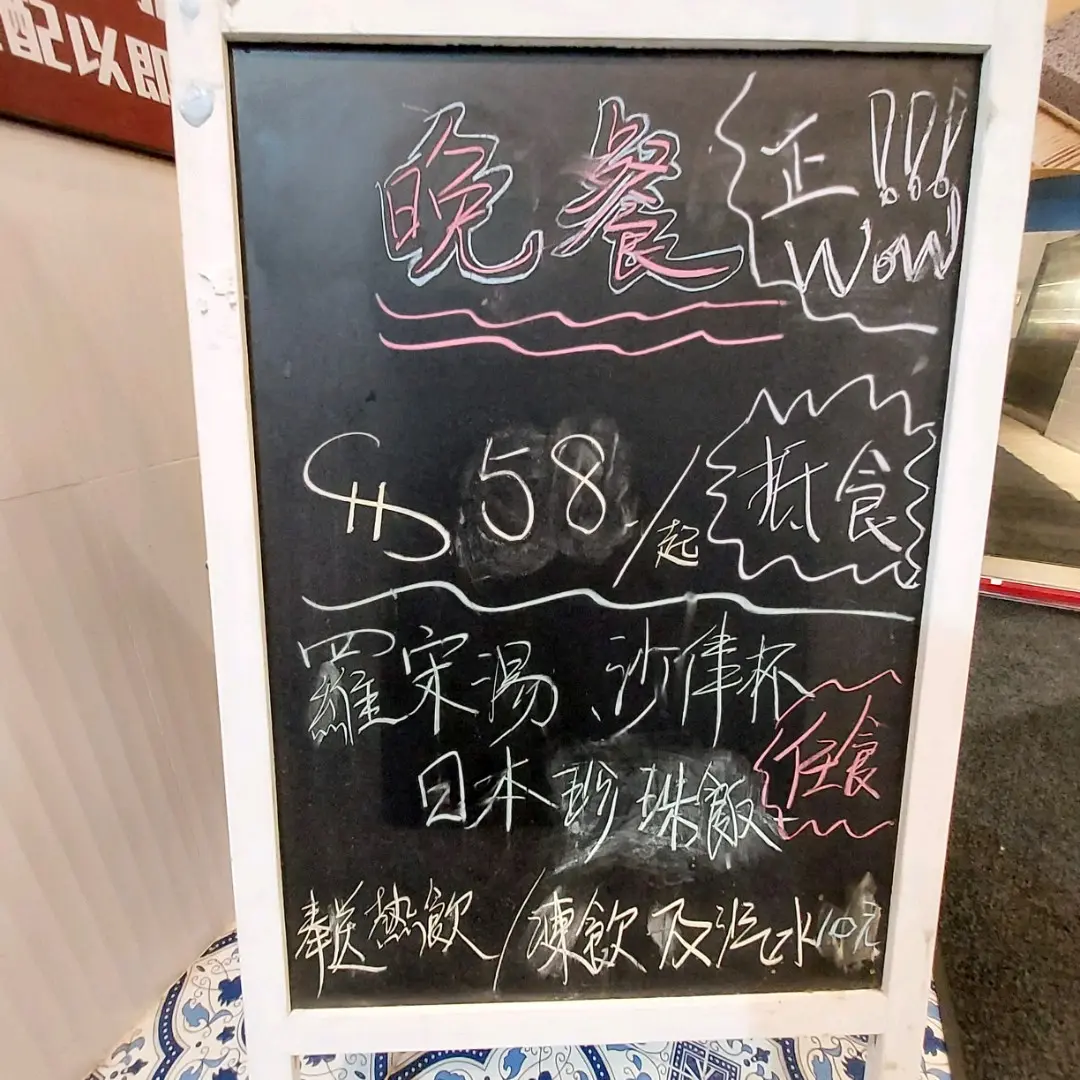 配以即
晚餐 正!!!
WOW
$58/起 抵食
羅宋湯 沙律杯
日本珍珠飯 任食
奉送熱飲/凍飲及汽水10元